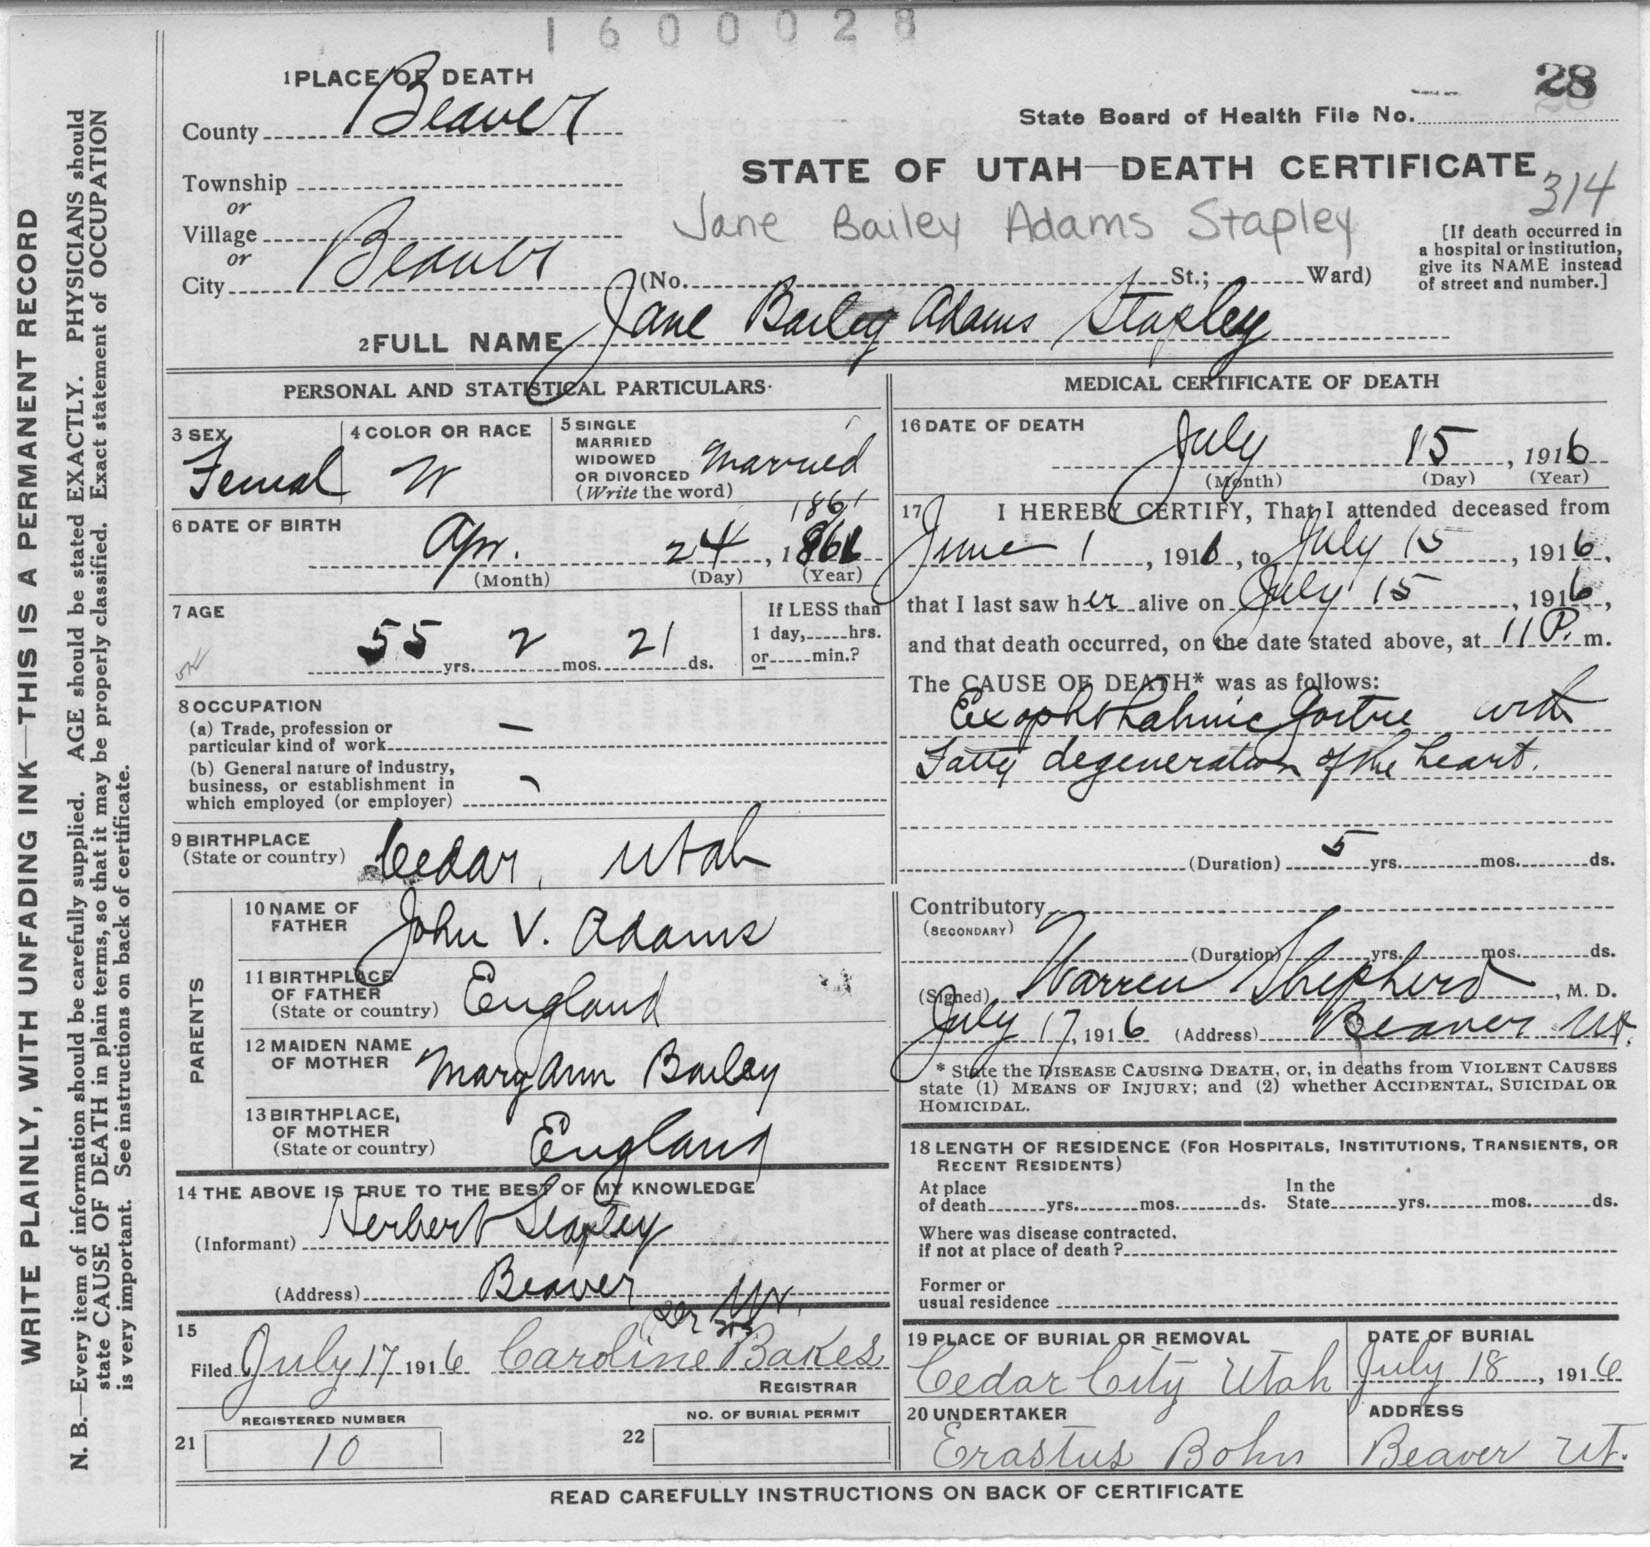 1600028
28
1 PLACE OF DEATH
County Beaver
State Board of Health File No.
Township
or
Village
or
City Beaver
STATE OF UTAH—DEATH CERTIFICATE
314
Jane Bailey Adams Stapley
[If death occurred in
a hospital or institution,
give its NAME instead
of street and number.]
(No. St.; Ward)
2 FULL NAME Jane Bailey Adams Stapley
PERSONAL AND STATISTICAL PARTICULARS.
3 SEX
Femal
4 COLOR OR RACE
W
5 SINGLE
MARRIED
WIDOWED
OR DIVORCED
(Write the word)
Married
6 DATE OF BIRTH
1861
Apr. 24, 1861
(Month) (Day) (Year)
7 AGE
55 yrs. 2 mos. 21 ds.
If LESS than
1 day, hrs.
or min.?
8 OCCUPATION
(a) Trade, profession or
particular kind of work —
(b) General nature of industry,
business, or establishment in
which employed (or employer)
9 BIRTHPLACE
(State or country) Cedar, Utah
PARENTS
10 NAME OF
FATHER John V. Adams
11 BIRTHPLACE
OF FATHER
(State or country) England
12 MAIDEN NAME
OF MOTHER Mary Ann Bailey
13 BIRTHPLACE,
OF MOTHER
(State or country) England
14 THE ABOVE IS TRUE TO THE BEST OF MY KNOWLEDGE
(Informant) Herbert Stapley
(Address) Beaver
15
Filed July 17 1916 Caroline Bakes
REGISTRAR
REGISTERED NUMBER
21 10
NO. OF BURIAL PERMIT
22
MEDICAL CERTIFICATE OF DEATH
16 DATE OF DEATH
July 15, 1916
(Month) (Day) (Year)
17 I HEREBY CERTIFY, That I attended deceased from
June 1, 1916, to July 15, 1916,
that I last saw her alive on July 15, 1916,
and that death occurred, on the date stated above, at 11 P. m.
The CAUSE OF DEATH* was as follows:
Exophthalmic Goitre with
Fatty degeneration of the heart.
(Duration) 5 yrs. mos. ds.
Contributory
(SECONDARY)
(Duration) yrs. mos. ds.
(Signed) Warren Shepherd, M. D.
July 17, 1916 (Address) Beaver Ut.
* State the DISEASE CAUSING DEATH, or, in deaths from VIOLENT CAUSES
state (1) MEANS OF INJURY; and (2) whether ACCIDENTAL, SUICIDAL OR
HOMICIDAL.
18 LENGTH OF RESIDENCE (FOR HOSPITALS, INSTITUTIONS, TRANSIENTS, OR
RECENT RESIDENTS)
At place
of death yrs. mos. ds.
In the
State yrs. mos. ds.
Where was disease contracted,
if not at place of death?
Former or
usual residence
19 PLACE OF BURIAL OR REMOVAL
Cedar City Utah
DATE OF BURIAL
July 18, 1916
20 UNDERTAKER
Erastus Bohn
ADDRESS
Beaver Ut.
READ CAREFULLY INSTRUCTIONS ON BACK OF CERTIFICATE
WRITE PLAINLY, WITH UNFADING INK—THIS IS A PERMANENT RECORD
N. B.—Every item of information should be carefully supplied. AGE should be stated EXACTLY. PHYSICIANS should
state CAUSE OF DEATH in plain terms, so that it may be properly classified. Exact statement of OCCUPATION
is very important. See instructions on back of certificate.